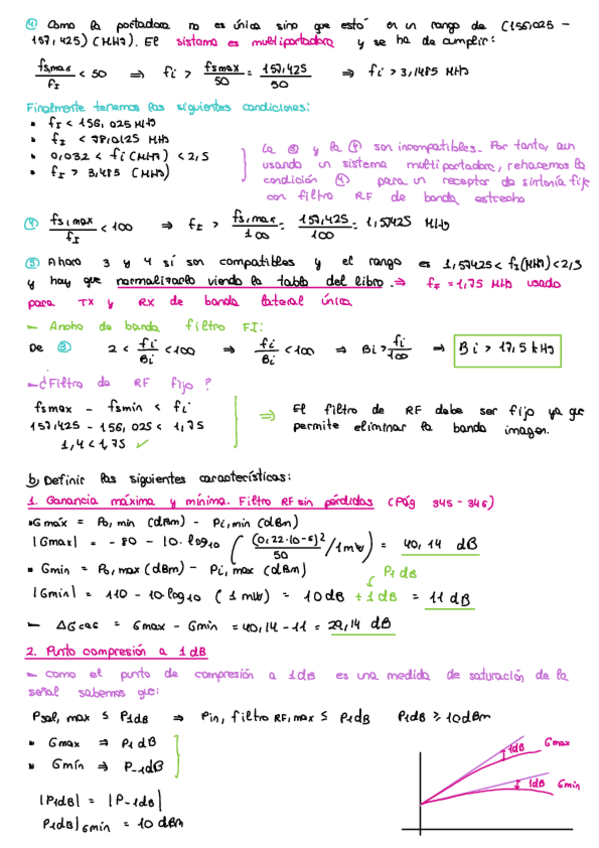 ④ Como la portadora no es única sino que está en un rango de (156,025 -
157,425) (MHz). El sistema es multiportadora y se ha de cumplir:
fs,max / fI < 50 ⇒ fi > fsmax / 50 = 157,425 / 50 ⇒ fi > 3,1485 MHz
Finalmente tenemos las siguientes condiciones:
• fI < 156,025 MHz
• fI < 78,0125 MHz
• 0,032 < fi (MHz) < 2,5
• fI > 3,1485 (MHz)
La ③ y la ④ son incompatibles. Por tanto, aun
usando un sistema multiportadora, rehacemos la
condición ④ para un receptor de sintonía fija
con filtro RF de banda estrecha
④ fs,max / fI < 100 ⇒ fI > fs,max / 100 = 157,425 / 100 = 1,57425 MHz
⑤ Ahora 3 y 4 sí son compatibles y el rango es 1,57425 < fI (MHz) < 2,3
y hay que normalizarlo viendo la tabla del libro. ⇒ fI = 1,75 MHz usado
para TX y RX de banda lateral única
- Ancho de banda filtro FI:
De ③ 2 < fi / Bi < 100 ⇒ fi / Bi < 100 ⇒ Bi > fi / 100 ⇒ Bi > 17,5 kHz
- ¿Filtro de RF fijo?
fsmax - fsmin < fi
157,425 - 156,025 < 1,75
1,4 < 1,75 ✓
⇒ El filtro de RF debe ser fijo ya que
permite eliminar la banda imagen.
b) Definir las siguientes características:
1. Ganancia máxima y mínima. Filtro RF sin pérdidas (Pág 345 - 346)
• Gmáx = Po,min (dBm) - Pi,min (dBm)
|Gmax| = -80 - 10·log10 ((0,22·10-6)² / 50 / 1mW) = 40,14 dB
• Gmin = Po,max (dBm) - Pi,max (dBm)
P1dB
|Gmin| = 110 - 10·log10 (1 mW) = 10dB + 1dB = 11 dB
- ΔGcag = Gmax - Gmin = 40,14 - 11 = 29,14 dB
2. Punto compresión a 1dB
- Como el punto de compresión a 1dB es una medida de saturación de la
señal sabemos que:
Psal,max ≤ P1dB ⇒ Pin, filtro RF,max ≤ P1dB P1dB ≥ 10dBm
• Gmax ⇒ P1dB
• Gmín ⇒ P-1dB
|P1dB| = |P-1dB|
P1dB|Gmin = 10 dBm
1dB Gmax
1dB Gmin